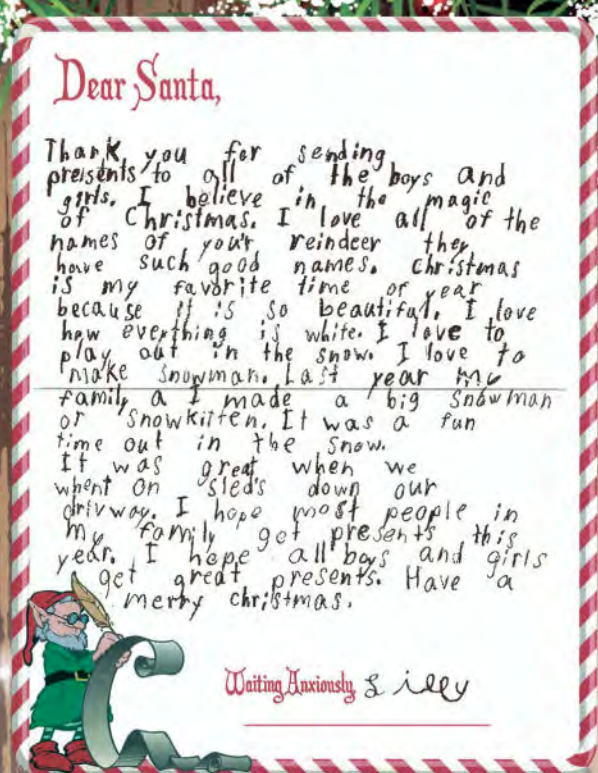 Dear Santa,
Thank you for sending
preisents to all of the boys and
girls. I believe in the magic
of Christmas. I love all of the
names of your reindeer they
have such good names. christmas
is my favorite time of year
because it is so beautiful. I love
how everthing is white. I love to
play out in the snow. I love to
make snowman. Last year my
family a I made a big snowman
or snowkitten. It was a fun
time out in the snow.
It was great when we
whent on sled's down our
drivway. I hope most people in
my family get presents this
year. I hope all boys and girls
get great presents. Have a
merry christmas.
Waiting Anxiously, Lilly